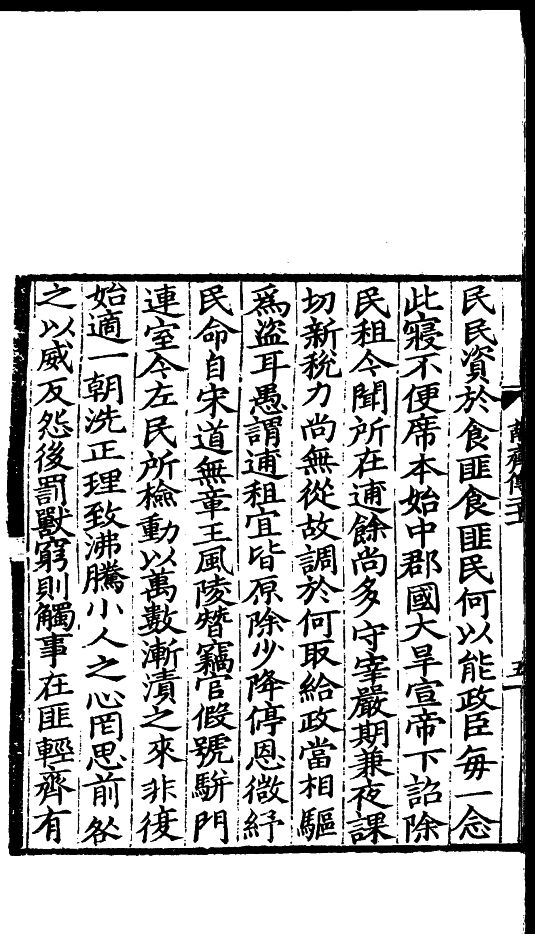 民民資於食匪食匪民何以能政臣每一念
此寢不便席本始中郡國大旱宣帝下詔除
民租今聞所在逋餘尚多守宰嚴期兼夜課
切新稅力尚無從故調於何取給政當相驅
爲盜耳愚謂逋租宜皆原除少降停恩微紓
民命自宋道無章王風陵替竊官假號駢門
連室今左民所檢動以萬數漸漬之來非復
始適一朝洗正理致沸騰小人之心罔思前咎
之以威反怨後罰獸窮則觸事在匪輕齊有